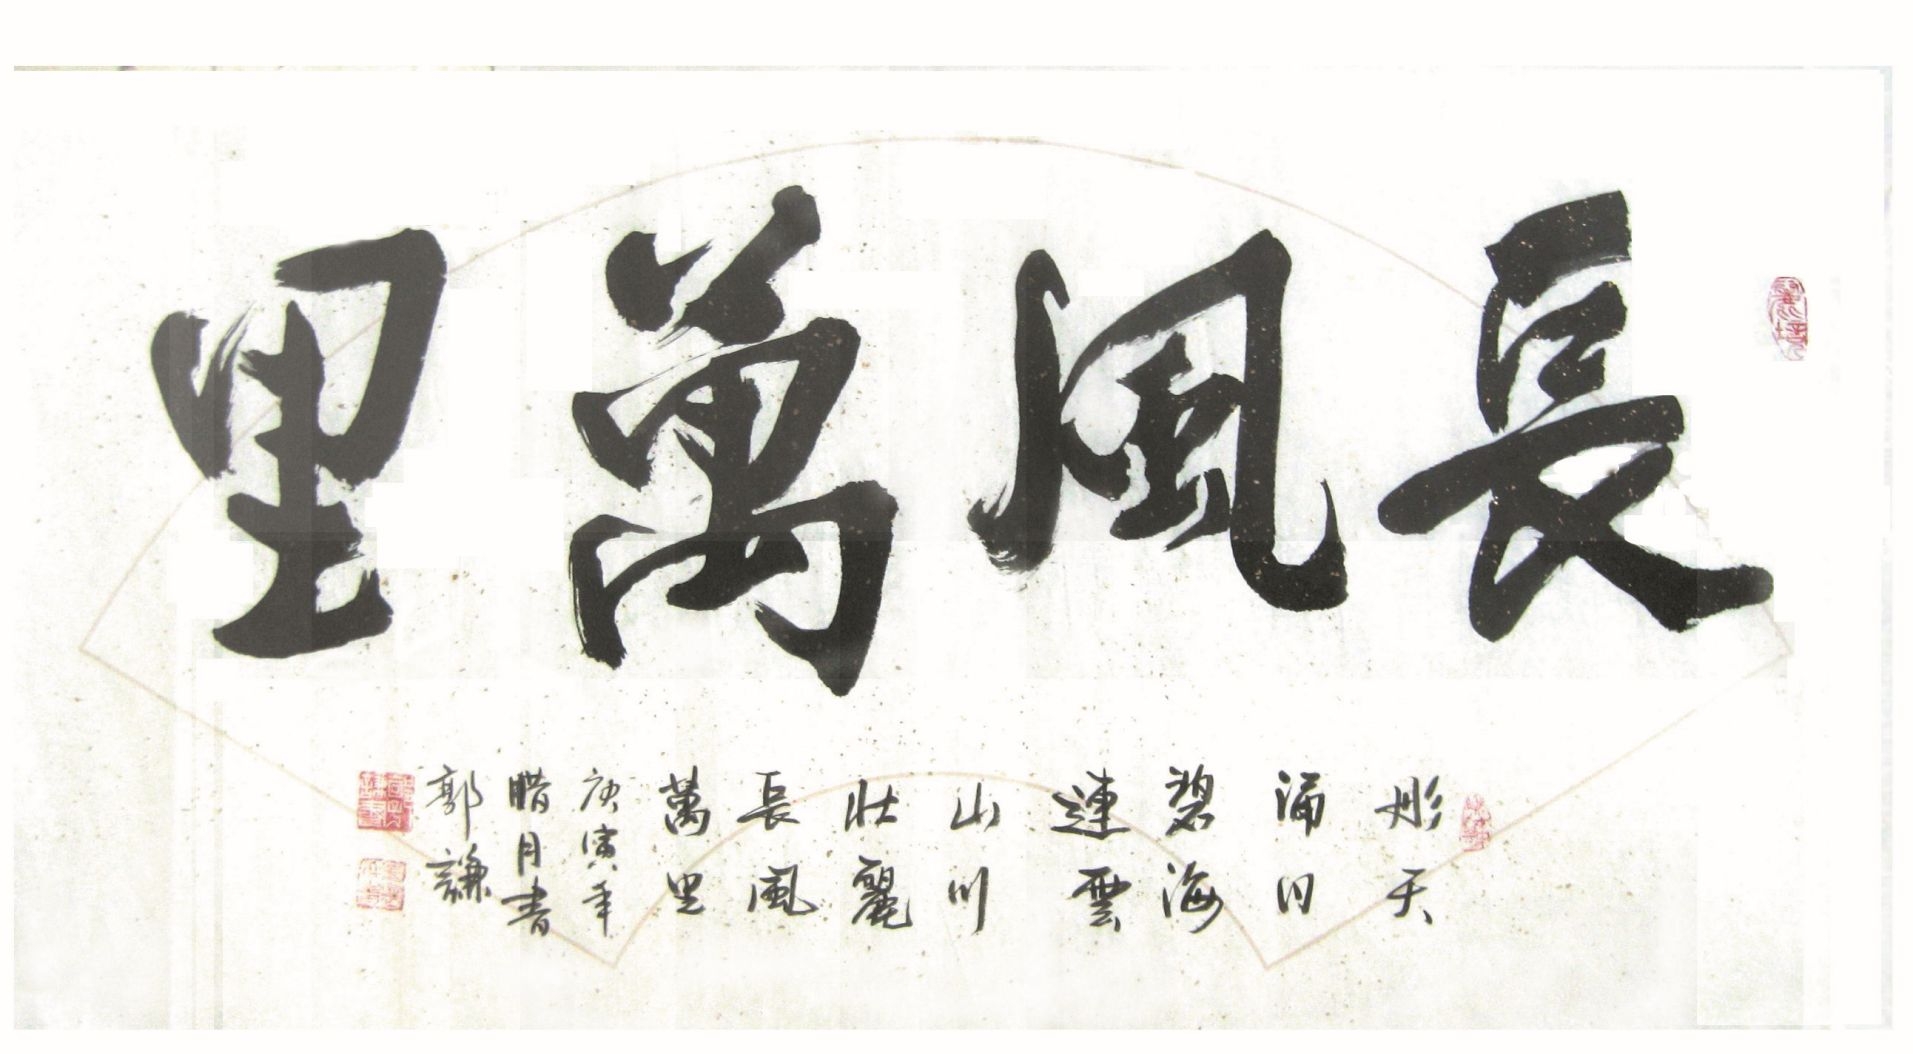 長風萬里
彤天
涌日
碧海
連雲
山川
壯麗
長風
萬里
庚寅年
腊月書
郭謙